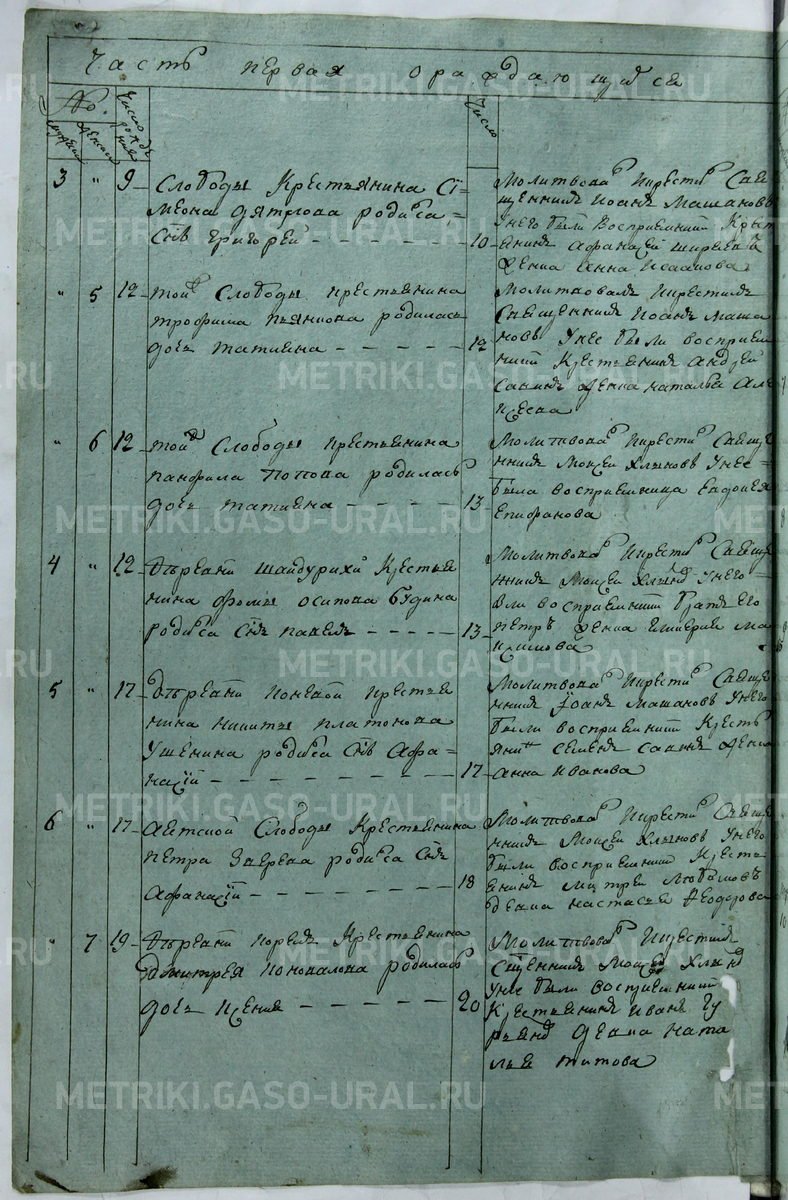 Часть первая ораждающихся
№. Число рожденія
мужеска женска
Число
3 " 9 Слободы Крестьянина Сі-
меона дятлова родился
Снъ Григорей - - - - - - 10
Молитвовалъ икрестилъ Свя
щенникъ Иоанъ Машановъ
Унего были восприемники Крѣст
янинъ Афанасей Ширяевъ
Женка Анна Исакова
" 5 12 тойже Слободы крестьянина
трофима пьянкова родилась
дочь татиана - - - - - 12
Молитвовалъ икрестилъ
Священникъ Иоанъ Маша
новъ Унее были восприем
ники Крестьянинъ андрей
Савинъ женка наталья Але
ксеева
" 6 12 тойже Слободы крестьянина
панфила попова родилась
дочь татиана - - - - 13
Молитвовалъ икрестилъ Свяще
нникъ Моисей Хлыновъ Унее
была восприемница Евдокея
Епифанова
4 " 12 дѣревни шайдурихи Крестья
нина фомы осипова
родился Снъ павелъ - - - - - 13
Молитвовалъ икрестилъ Свяще
нникъ Моисей Хлыновъ Унего
были восприемники братъ его
петръ Женка Ма
ксимова
5 " 17 Дѣревни крестья
нина никиты платонова
Ушенина родился Снъ Афа-
насий - - - - - - - - - 17
Молитвовалъ икрестилъ Свяще
нникъ Иоанъ Машановъ Унего
были восприемники Кресть
янинъ Семенъ Савинъ женка
анна Иванова
6 " 17 аетской Слободы Крестьянина
петра Зверева родился Снъ
Афанасий - - - - - - - - 18
Молитвовалъ икрестилъ Свяще
нникъ Моисей Хлыновъ Унего
были восприемники Кресть
янинъ Митрей Любимовъ
девка настасья Феодорова
" 7 19 дѣревни Крестьянина
Дмитрея коновалова родилась
дочь Ксения - - - - - - 20
Молитвовалъ икрестилъ
Священникъ Моисей Хлыновъ
Унее были восприемники
Крестьянинъ Иванъ Гу
рьевъ девка ната
лья титова
METRIKI.GASO-URAL.RU